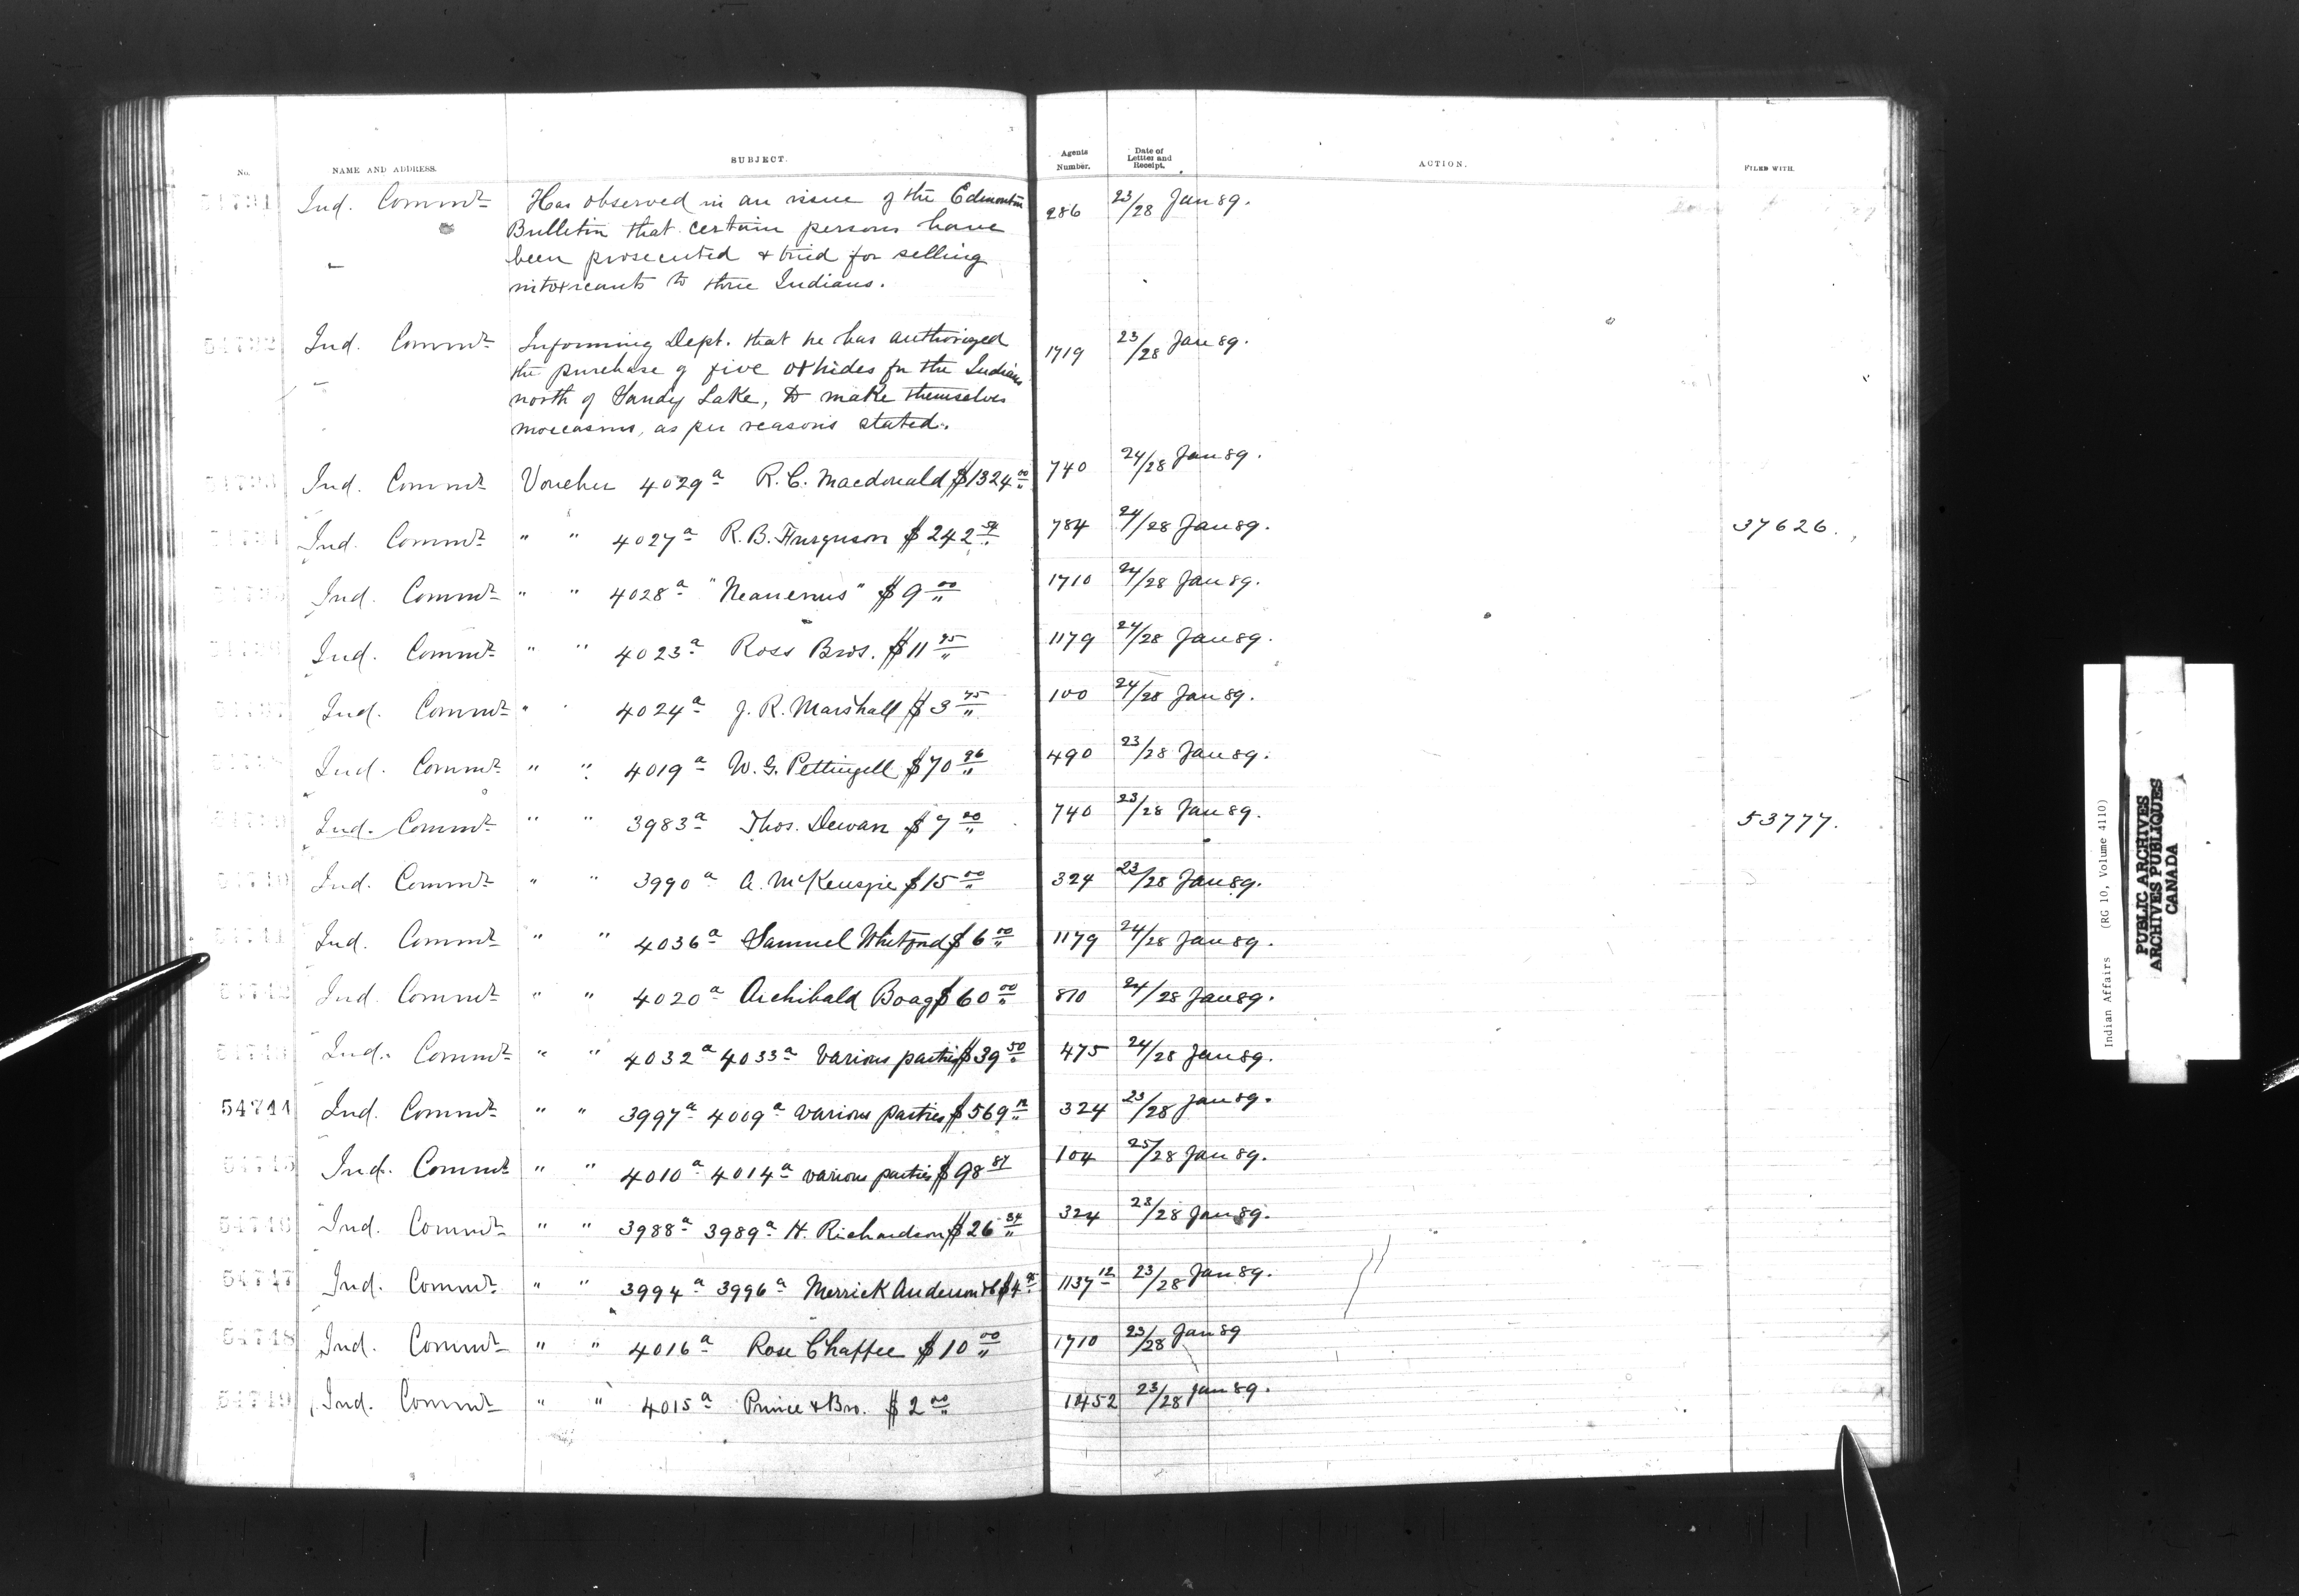 No. NAME AND ADDRESS. SUBJECT. Agents Number. Date of Lettter and Receipt. ACTION. FILED WITH.
Ind. Commr Has observed in an issue of the Edmonton 286 23/28 Jan 89.
Bulletin that certain persons have
been prosecuted & tried for selling
intoxicants to three Indians.
Ind. Commr Informing Dept. that he has authorized 1719 23/28 Jan 89.
the purchase of five oxhides for the Indians
north of Sandy Lake, to make themselves
moccasins, as per reasons stated.
Ind. Commr Voucher 4029a R. C. Macdonald $1324 00 740 24/28 Jan 89.
Ind. Commr " " 4027a R. B. Furguson $242 784 24/28 Jan 89. 37626.
Ind. Commr " " 4028a " " $9 00 1710 24/28 Jan 89.
Ind. Commr " " 4023a Ross Bros. $11 95 1179 24/28 Jan 89.
Ind. Commr " " 4024a J. R. Marshall $3 75 100 24/28 Jan 89.
Ind. Commr " " 4019a W. G. Pettingell $70 96 490 23/28 Jan 89.
Ind. Commr " " 3983a Thos. Dewan $7 00 740 23/28 Jan 89. 53777.
Ind. Commr " " 3990a A. McKenzie $15 00 324 23/28 Jan 89.
Ind. Commr " " 4036a Samuel Whitford $6 00 1179 24/28 Jan 89.
Ind. Commr " " 4020a Archibald Boag $60 00 810 24/28 Jan 89.
Ind. Commr " " 4032a 4033a Various parties $39 50 475 24/28 Jan 89.
54744 Ind. Commr " " 3997a 4009a various parties $569 12 324 23/28 Jan 89.
54745 Ind. Commr " " 4010a 4014a various parties $98 87 104 25/28 Jan 89.
54746 Ind. Commr " " 3988a 3989a H. Richardson $26 34 324 23/28 Jan 89.
54747 Ind. Commr " " 3994a 3996a Merrick Anderson & Co $4 1137 12 23/28 Jan 89.
54748 Ind. Commr " " 4016a Rose Chaffee $10 00 1710 23/28 Jan 89
54749 Ind. Commr " " 4015a Prince & Bro. $2 00 1452 23/28 Jan 89.
Indian Affairs (RG 10, Volume 4110)
PUBLIC ARCHIVES
ARCHIVES PUBLIQUES
CANADA